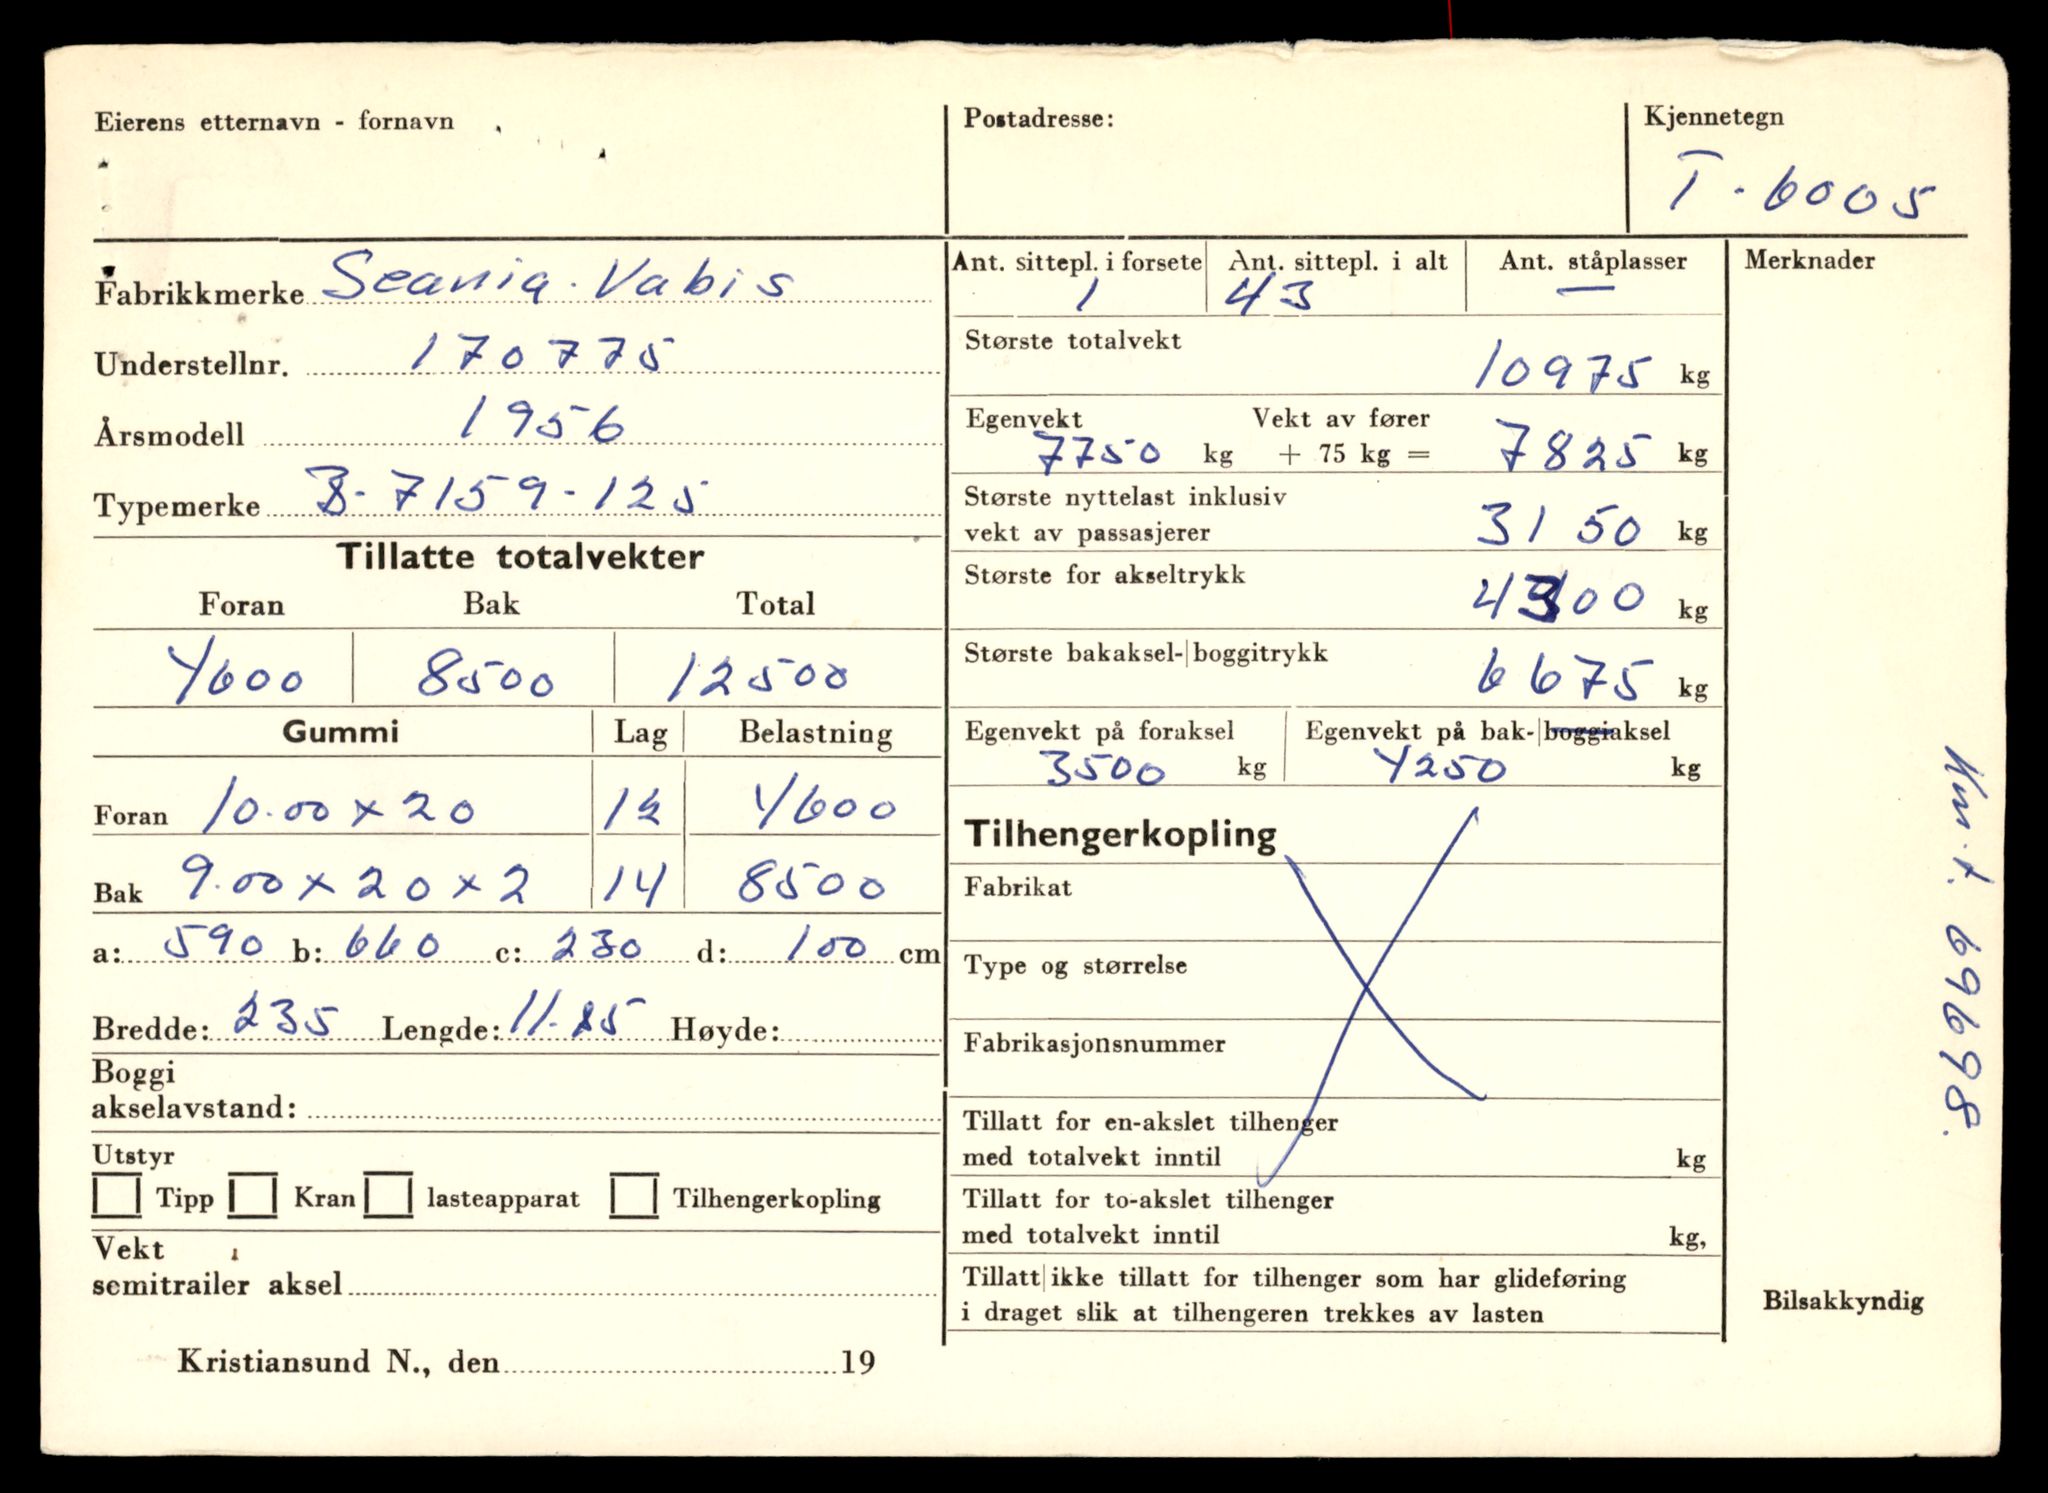 Eierens etternavn - fornavn
Postadresse:
Kjennetegn
T-6005
Fabrikkmerke Scania-Vabis
Understellnr. 170775
Årsmodell 1956
Typemerke B-7159-125
Tillatte totalvekter
Foran Bak Total
4600 8500 12500
Gummi Lag Belastning
Foran 10.00 x 20 12 4600
Bak 9.00 x 20 x 2 14 8500
a: 590 b: 660 c: 230 d: 100 cm
Bredde: 235 Lengde: 11.85 Høyde:
Boggi
akselavstand:
Utstyr
Tipp Kran lasteapparat Tilhengerkopling
Vekt
semitrailer aksel
Kristiansund N., den 19
Ant. sittepl. i forsete Ant. sittepl. i alt Ant. ståplasser
1 43 —
Største totalvekt
10975 kg
Egenvekt Vekt av fører
7750 kg + 75 kg = 7825 kg
Største nyttelast inklusiv
vekt av passasjerer 3150 kg
Største for akseltrykk
4300 kg
Største bakaksel-|boggitrykk
6675 kg
Egenvekt på foraksel Egenvekt på bak-|boggiaksel
3500 kg 4250 kg
Tilhengerkopling
Fabrikat
Type og størrelse
Fabrikasjonsnummer
Tillatt for en-akslet tilhenger
med totalvekt inntil kg
Tillatt for to-akslet tilhenger
med totalvekt inntil kg,
Tillatt|ikke tillatt for tilhenger som har glideføring
i draget slik at tilhengeren trekkes av lasten
Merknader
Km.t. 696698.
Bilsakkyndig